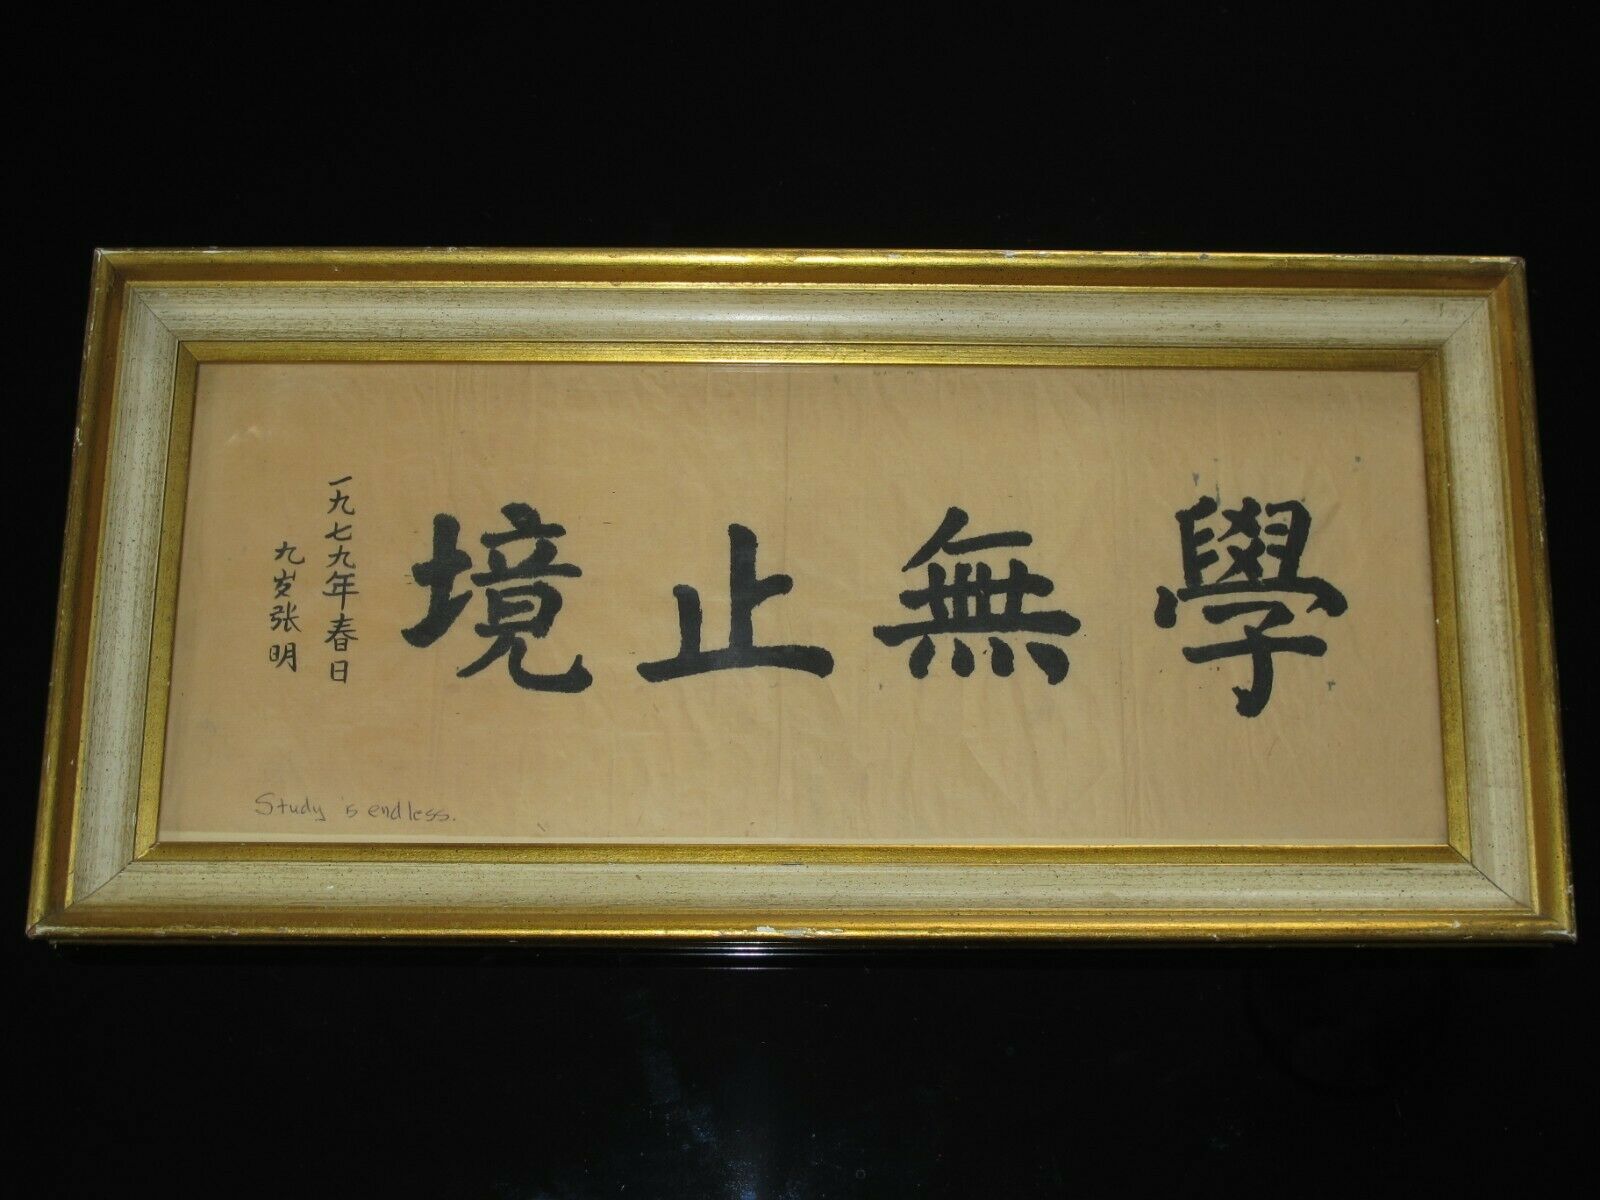 學無止境
一九七九年春日
九岁张明
Study is endless.